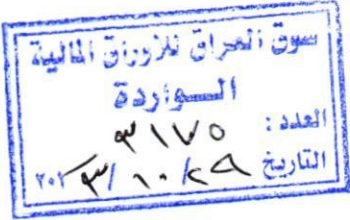 سوق العراق للأوراق المالية
الواردة
العدد: ٣١٧٥
التاريخ ٢٠٢٣/١٠/٢٩